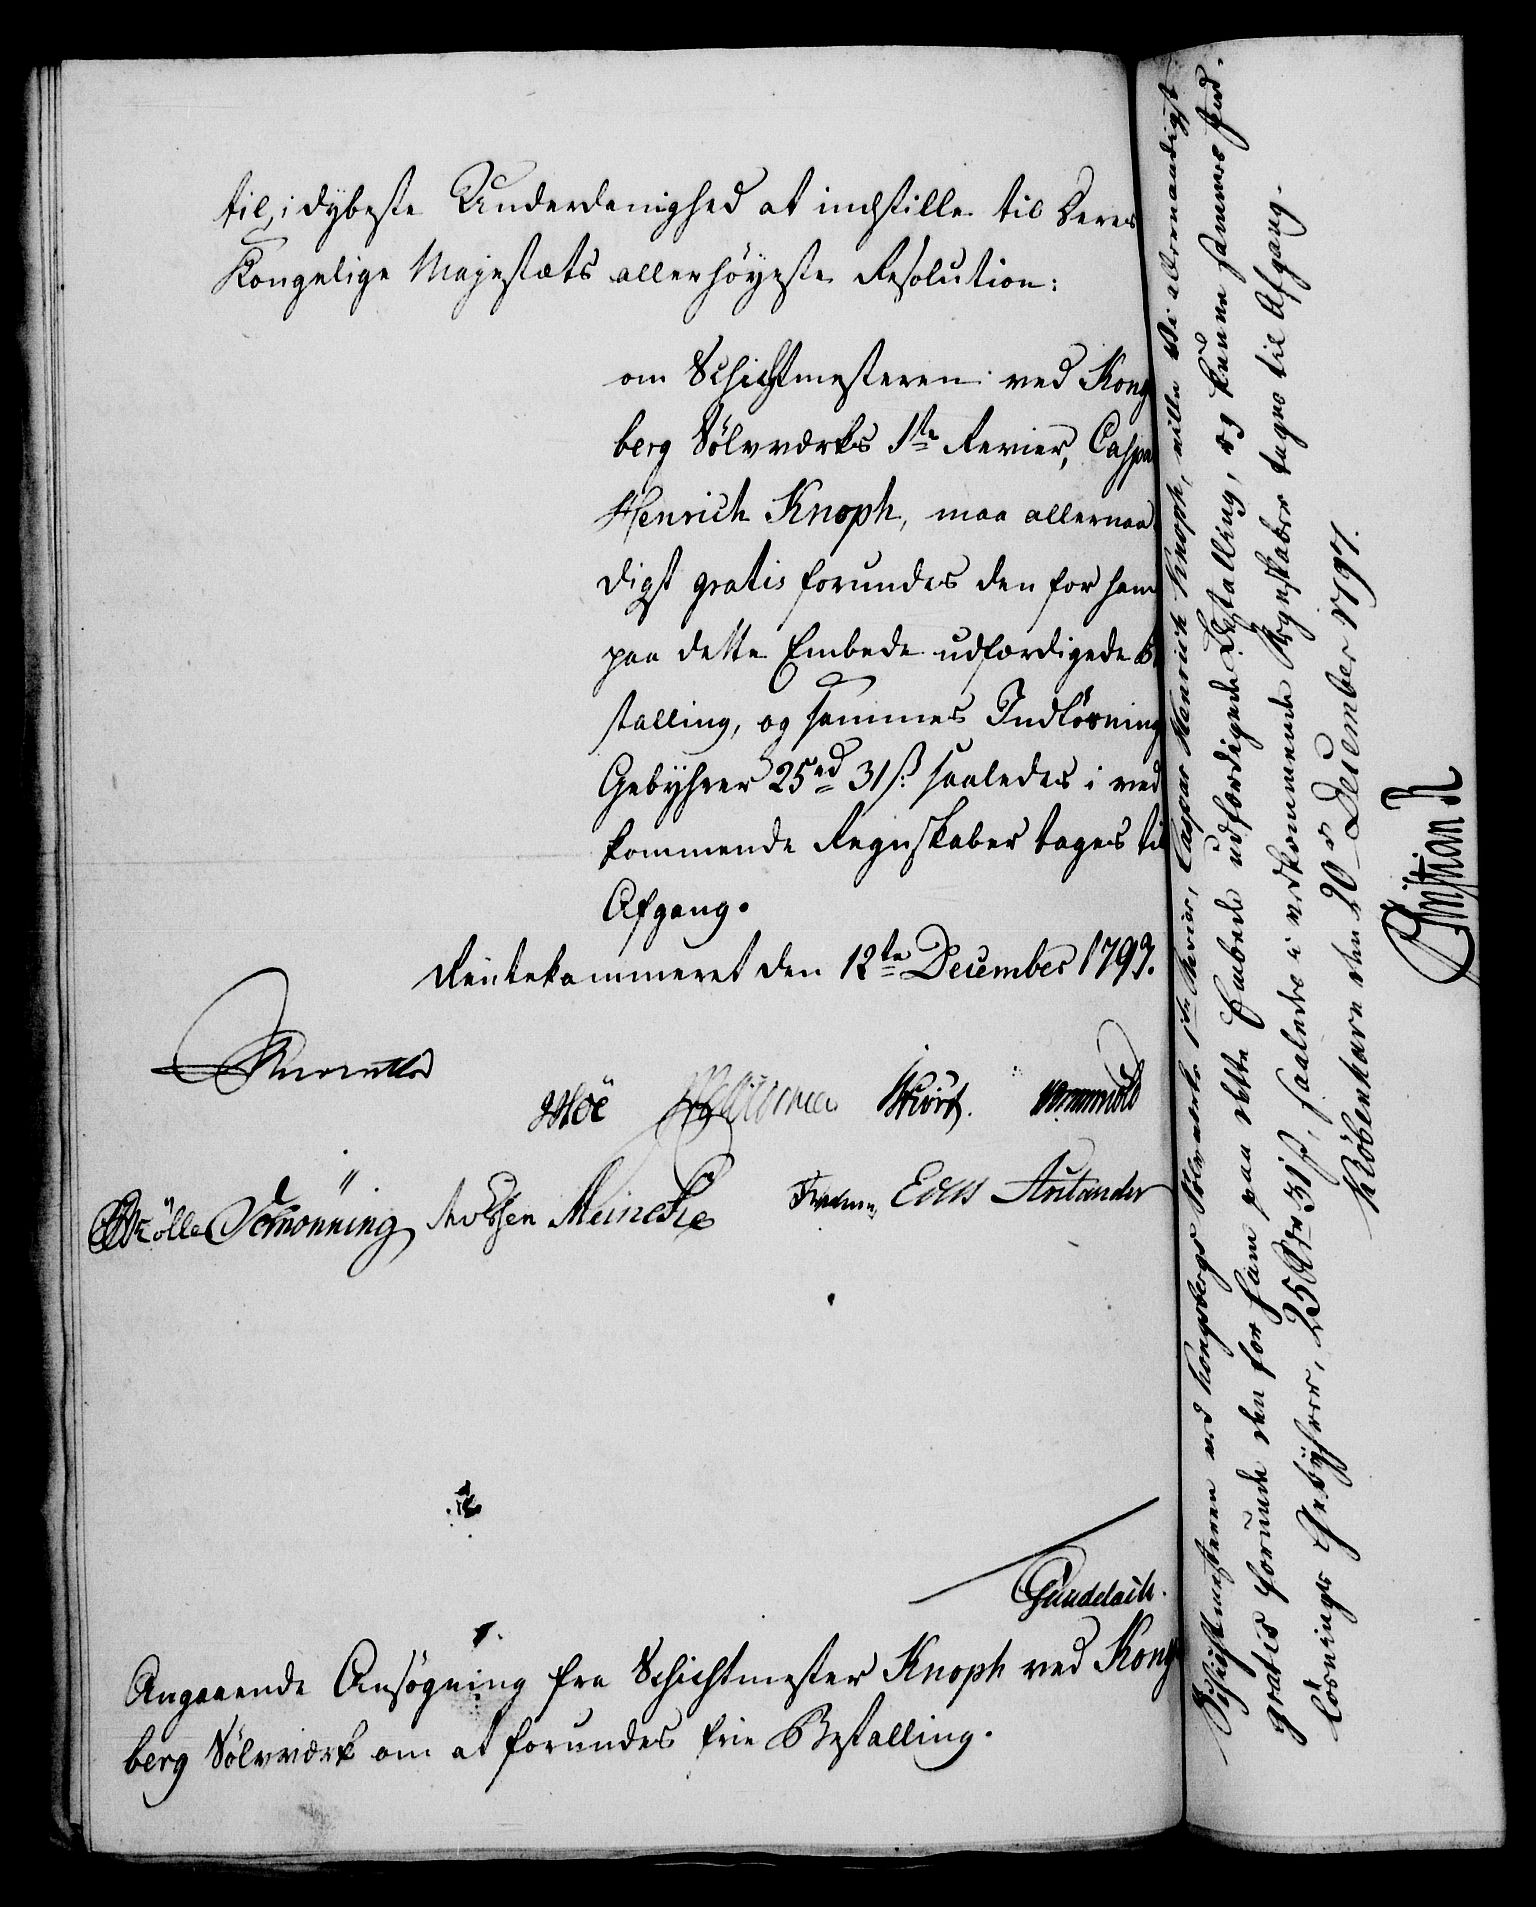 til, i dybeste Underdanighed at indstille til Deres
Kongelige Majestæts allerhøyeste Resolution:
om Schichtmesteren ved Kongs
berg Sølvværks 1ste Revier, Caspar
Henrich Knoph, maa allernaa
digst gratis forundes den for ham
paa dette Embede udfærdigede Be
stalling, og sammes Indløsnings
Gebyhrer 25rd 31 s. saaledes i ved
kommende Regnskaber tages til
Afgang.
Rentekammeret den 12te December 1797.
Moë Wormskiold
Schønning Meincke
Gundelach.
Angaaende Ansøgning fra Schichtmester Knoph ved Kongs
berg Sølvværk om at forundes frie Bestalling.
Schichtmesteren ved Kongsbergs Sølvværks 1ste Revier, Caspar Henrich Knoph, ville Vi allernaadigst
gratis forunde den for ham paa dette Embede udfærdigede Bestalling, og kunne sammes Ind-
løsnings Gebyhrer, 25 Rdr 31 s, saaledes i vedkommende Regnskaber tages til Afgang.
Kiøbenhavn den 20de December 1797.
Christian R